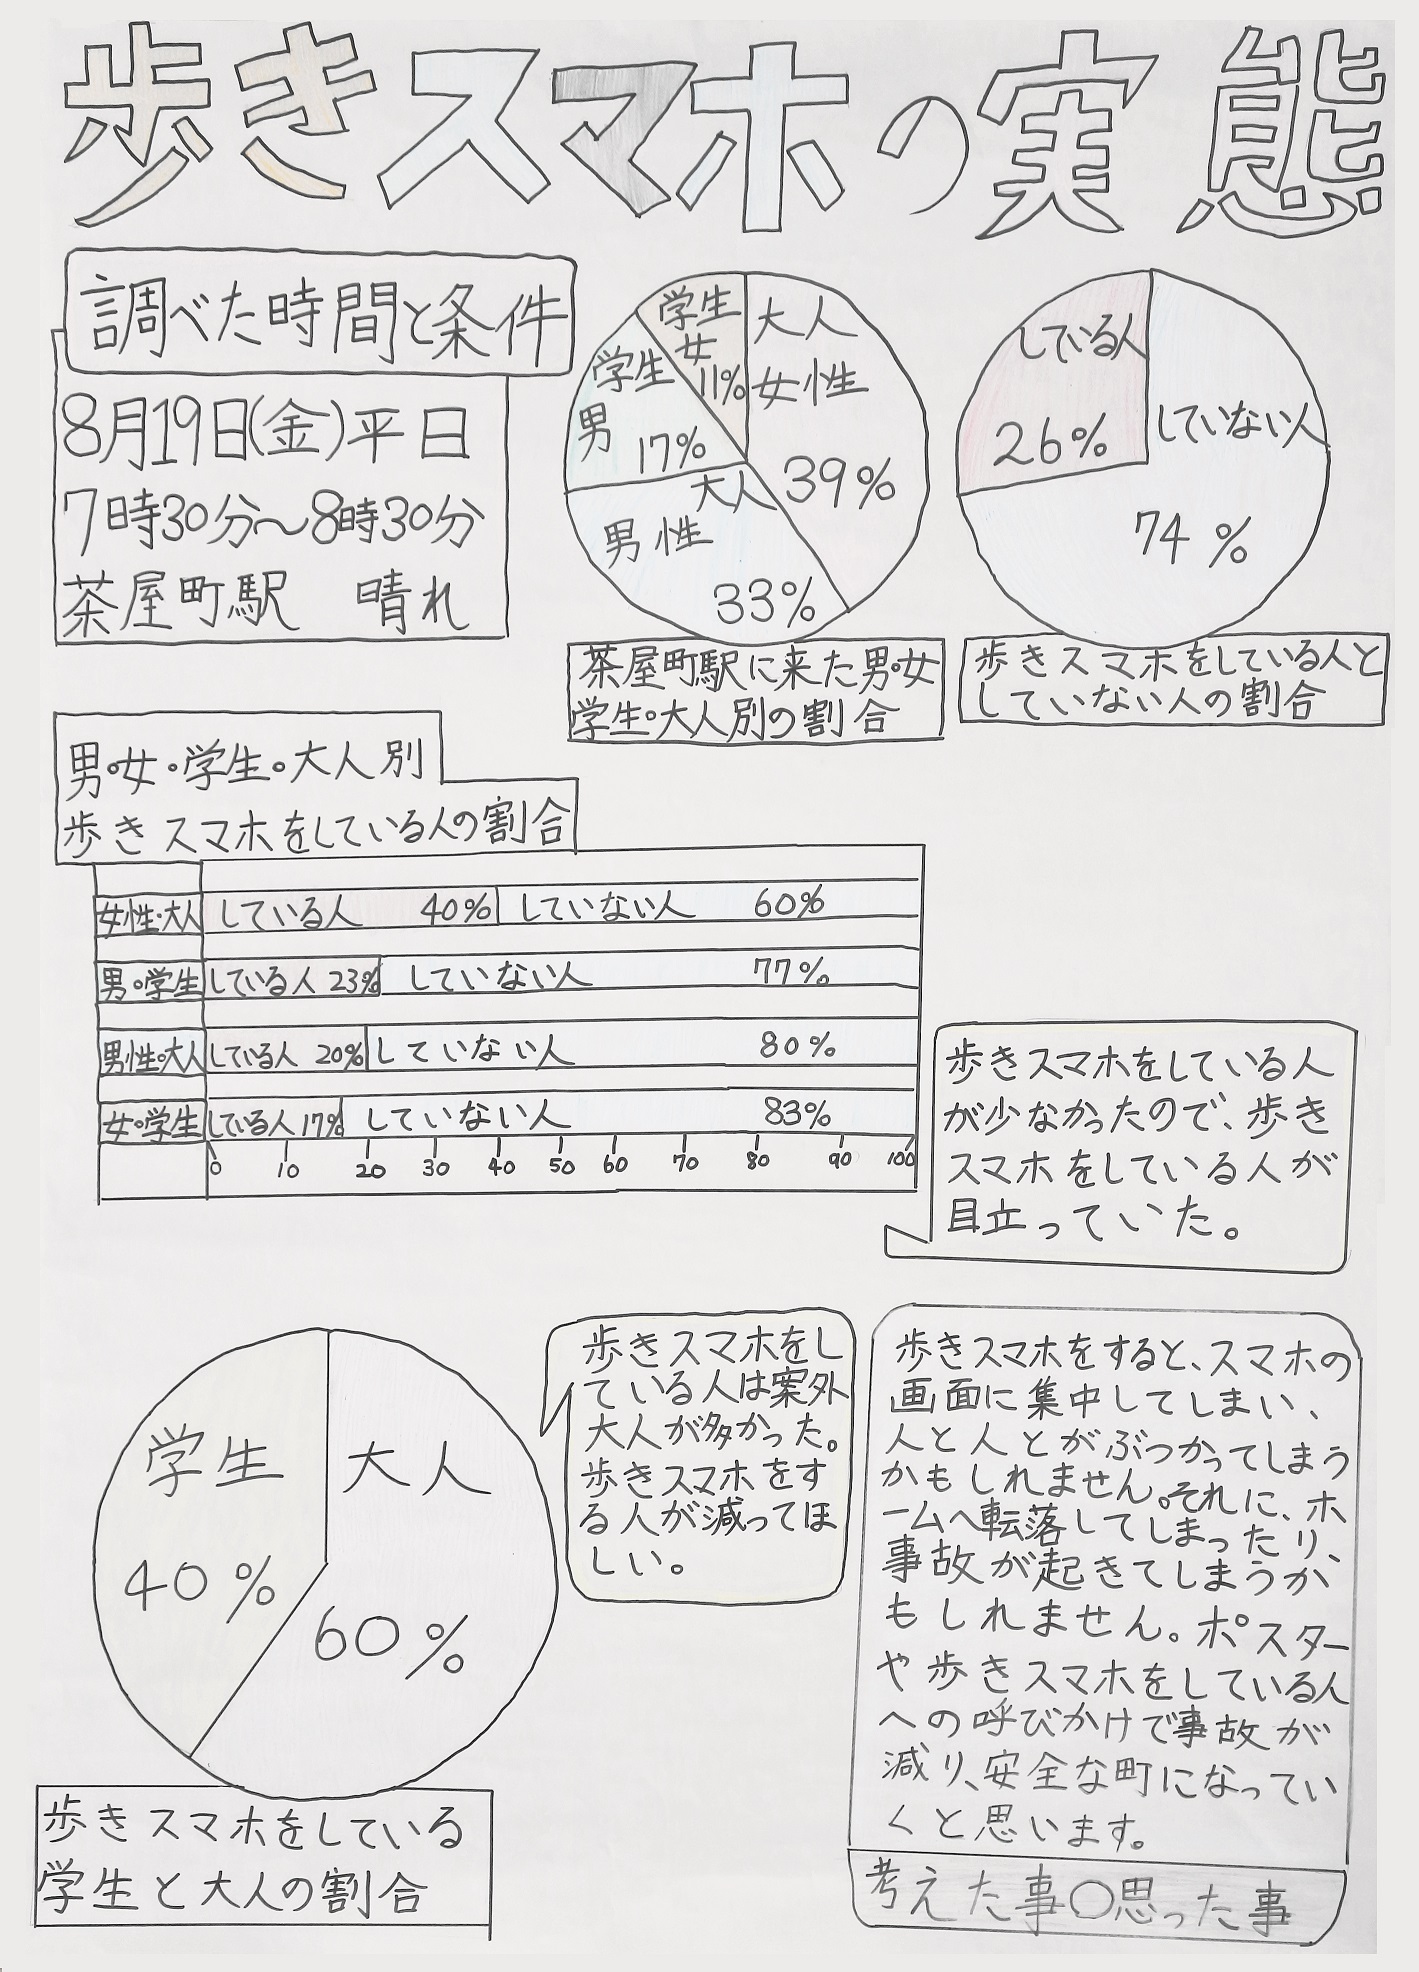 歩きスマホの実態
調べた時間と条件
8月19日(金)平日
7時30分～8時30分
茶屋町駅　晴れ
学生
女
11%
大人
女性
39%
学生
男
17%
大人
男性
33%
茶屋町駅に来た男・女
学生・大人別の割合
している人
26%
していない人
74%
歩きスマホをしている人と
していない人の割合
男・女・学生・大人別
歩きスマホをしている人の割合
女性・大人 している人 40% していない人 60%
男・学生 している人 23% していない人 77%
男性・大人 している人 20% していない人 80%
女・学生 している人 17% していない人 83%
0 10 20 30 40 50 60 70 80 90 100
歩きスマホをしている人
が少なかったので、歩き
スマホをしている人が
目立っていた。
学生
40%
大人
60%
歩きスマホをしている
学生と大人の割合
歩きスマホをし
ている人は案外
大人が多かった。
歩きスマホをす
る人が減ってほ
しい。
歩きスマホをすると、スマホの
画面に集中してしまい、
人と人とがぶつかってしまう
かもしれません。それに、ホ
ームへ転落してしまったり、
事故が起きてしまうか
もしれません。ポスター
や歩きスマホをしている人
への呼びかけで事故が
減り、安全な町になってい
くと思います。
考えた事○思った事